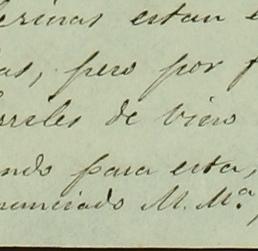 erinas estan e
as, pero por f
rriles de vino
ndo para esta,
nunciado M. Mª,